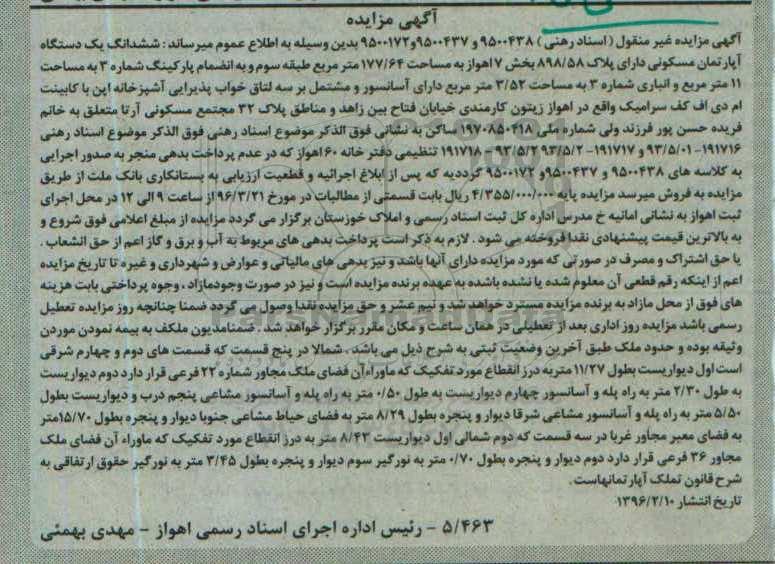 آگهی مزایده
آگهی مزایده غیر منقول (اسناد رهنی) ۹۵۰۰۴۳۸ و ۹۵۰۰۴۳۷و ۹۵۰۰۱۷۲ بدین وسیله به اطلاع عموم میرساند: ششدانگ یک دستگاه
آپارتمان مسکونی دارای پلاک ۸۹۸/۵۸ بخش ۷ اهواز به مساحت ۱۷۷/۶۴ متر مربع طبقه سوم و به انضمام پارکینگ شماره ۳ به مساحت
۱۱ متر مربع و انباری شماره ۳ به مساحت ۳/۵۲ متر مربع دارای آسانسور و مشتمل بر سه اتاق خواب پذیرایی آشپزخانه اپن با کابینت
ام دی اف کف سرامیک واقع در اهواز زیتون کارمندی خیابان فتاح بین زاهد و مناطق پلاک ۳۲ مجتمع مسکونی آرتا متعلق به خانم
فریده حسن پور فرزند ولی شماره ملی ۱۹۷۰۸۵۰۴۱۸ ساکن به نشانی فوق الذکر موضوع اسناد رهنی فوق الذکر موضوع اسناد رهنی
۱۹۱۷۱۶- ۹۳/۵/۰۱ و ۱۹۱۷۱۷- ۹۳/۵/۲ ۹۳/۵/۲ – ۱۹۱۷۱۸ تنظیمی دفتر خانه ۶۰ اهواز که در عدم پرداخت بدهی منجر به صدور اجرایی
به کلاسه های ۹۵۰۰۴۳۸ و ۹۵۰۰۴۳۷ و ۹۵۰۰۱۷۲ گرددیه که پس از ابلاغ اجرائیه و قطعیت ارزیابی به بستانکاری بانک ملت از طریق
مزایده به فروش میرسد مزایده پایه ۴/۳۵۵/۰۰۰/۰۰۰ ریال بابت قسمتی از مطالبات در مورخ ۹۶/۳/۲۱ از ساعت ۹ الی ۱۲ در محل اجرای
ثبت اهواز به نشانی امانیه خ مدرس اداره کل ثبت اسناد رسمی و املاک خوزستان برگزار می گردد مزایده از مبلغ اعلامی فوق شروع و
به بالاترین قیمت پیشنهادی نقدا فروخته می شود . لازم به ذکر است پرداخت بدهی های مربوط به آب و برق و گاز اعم از حق انشعاب .
یا حق اشتراک و مصرف در صورتی که مورد مزایده دارای آنها باشد و نیز بدهی های مالیاتی و عوارض و شهرداری و غیره تا تاریخ مزایده
اعم از اینکه رقم قطعی آن معلوم شده یا نشده باشده به عهده برنده مزایده است و نیز در صورت وجودمازاد ، وجوه پرداختی بابت هزینه
های فوق از محل مازاد به برنده مزایده مسترد خواهد شد و نیم عشر و حق مزایده نقدا وصول می گردد ضمنا چنانچه روز مزایده تعطیل
رسمی باشد مزایده روز اداری بعد از تعطیلی در همان ساعت و مکان مقرر برگزار خواهد شد . ضمنامدیون ملکف به بیمه نمودن موردن
وثیقه بوده و حدود ملک طبق آخرین وضعیت ثبتی به شرح ذیل می باشد . شمالا در پنج قسمت که قسمت های دوم و چهارم شرقی
است اول دیواریست بطول ۱۱/۲۷ متربه درز انقطاع مورد تفکیک که ماوراءآن فضای ملک مجاور شماره ۲۲ فرعی قرار دارد دوم دیواریست
به طول ۲/۳۰ متر به راه پله و آسانسور چهارم دیواریست به طول ۰/۵۰ متر به راه پله و آسانسور مشاعی پنجم درب و دیواریست بطول
۵/۵۰ متر به راه پله و آسانسور مشاعی شرقا دیوار و پنجره بطول ۸/۲۹ متر به فضای حیاط مشاعی جنوبا دیوار و پنجره بطول ۱۵/۷۰متر
به فضای معبر مجاور غربا در سه قسمت که دوم شمالی اول دیواریست ۸/۴۲ متر به درز انقطاع مورد تفکیک که ماوراء آن فضای ملک
مجاور ۳۶ فرعی قرار دارد دوم دیوار و پنجره بطول ۰/۷۰ متر به نورگیر سوم دیوار و پنجره بطول ۳/۴۵ متر به نورگیر حقوق ارتفاقی به
شرح قانون تملک آپارتمانهاست.
تاریخ انتشار ۱۳۹۶/۲/۱۰
۵/۴۶۳ – رئیس اداره اجرای اسناد رسمی اهواز – مهدی بهمئی
ParsNamadData